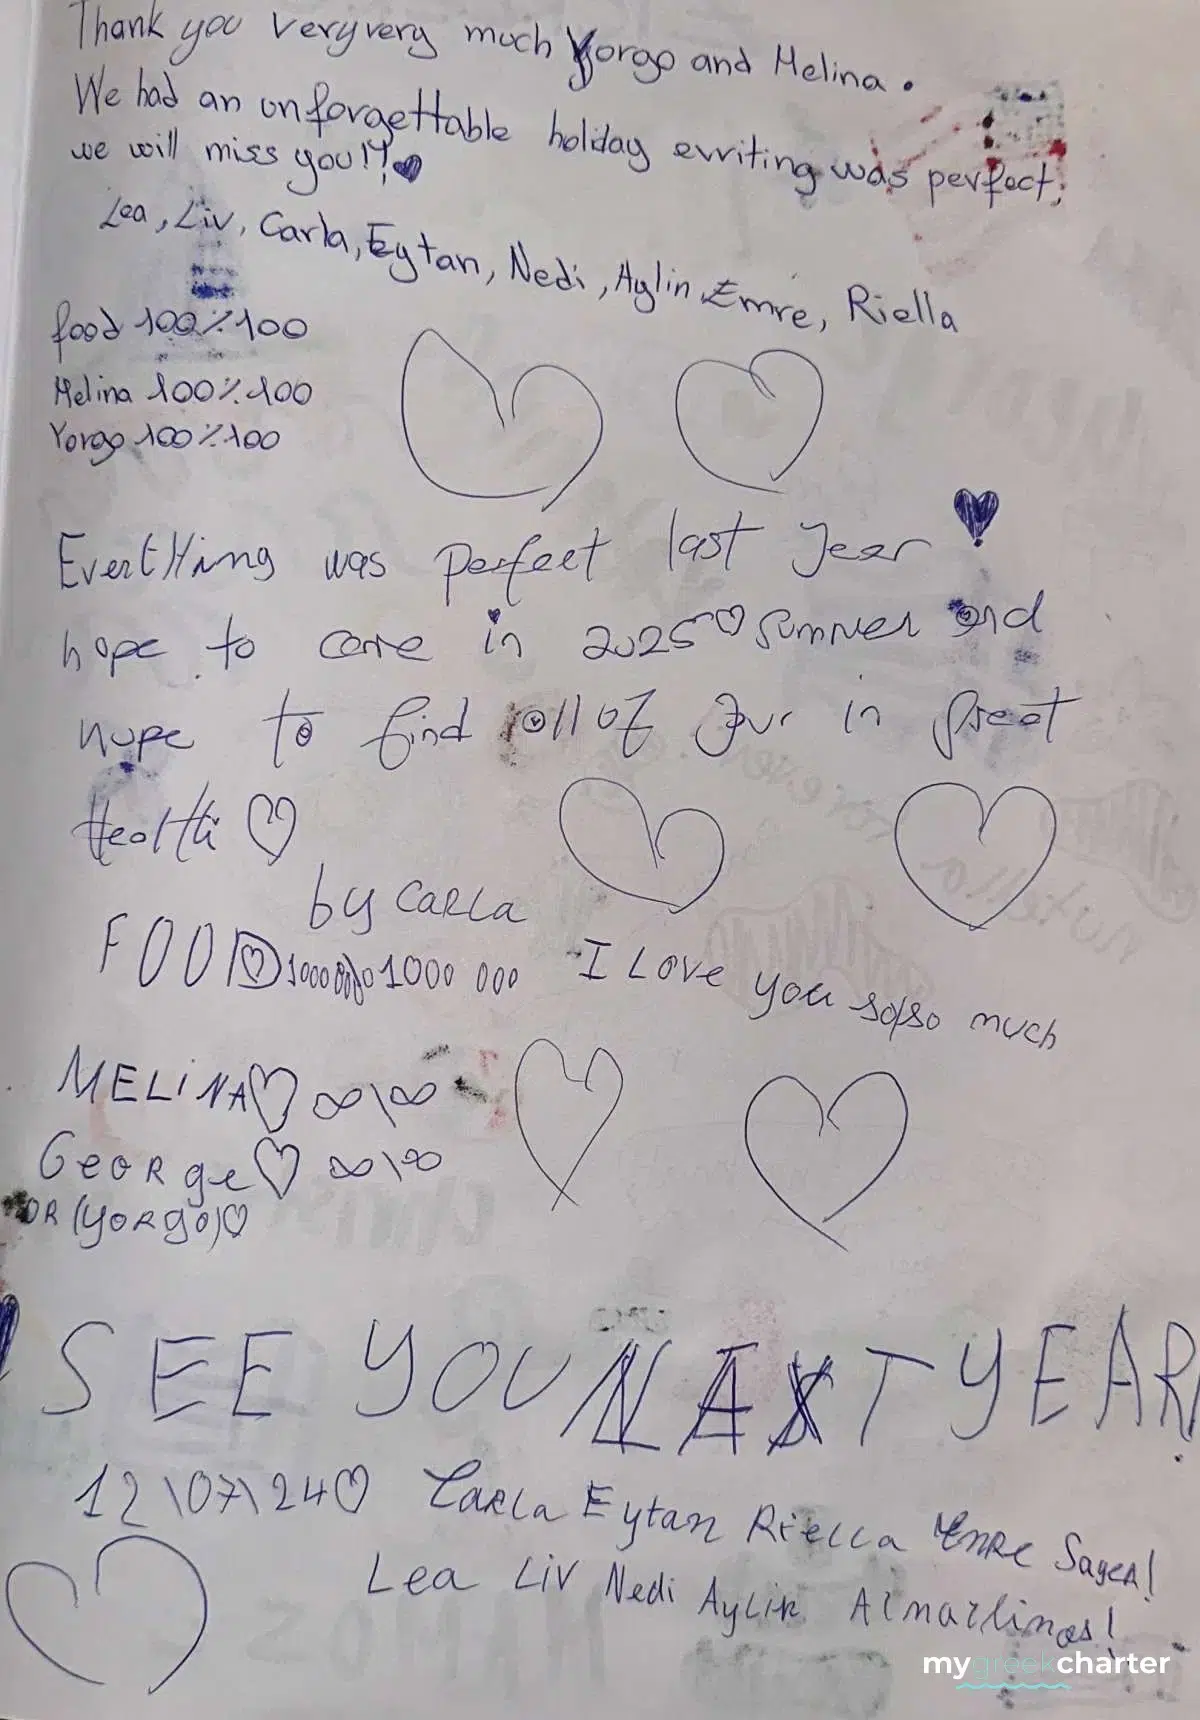 Thank you very very much Yorgo and Melina.
We had an unforgettable holiday evriting was perfect,
we will miss you!!
Lea, Liv, Carla, Eytan, Nedi, Aylin, Emre, Riella
food 100%100
Melina 100%100
Yorgo 100%100
EvertHing was perfect last year
hope to come in 2025 summer and
hope to find all of your in great
Healthi
by CARLA
FOOD 1000 000
I Love you so/so much
MELiNA ∞\∞
GeORge ∞\∞
OR (YORgO)
SEE YOU NEXT YEAR!
12\07\24 CaRLa Eytan Riella EmRe Sages!
Lea Liv Nedi Aylin
mygreekcharter